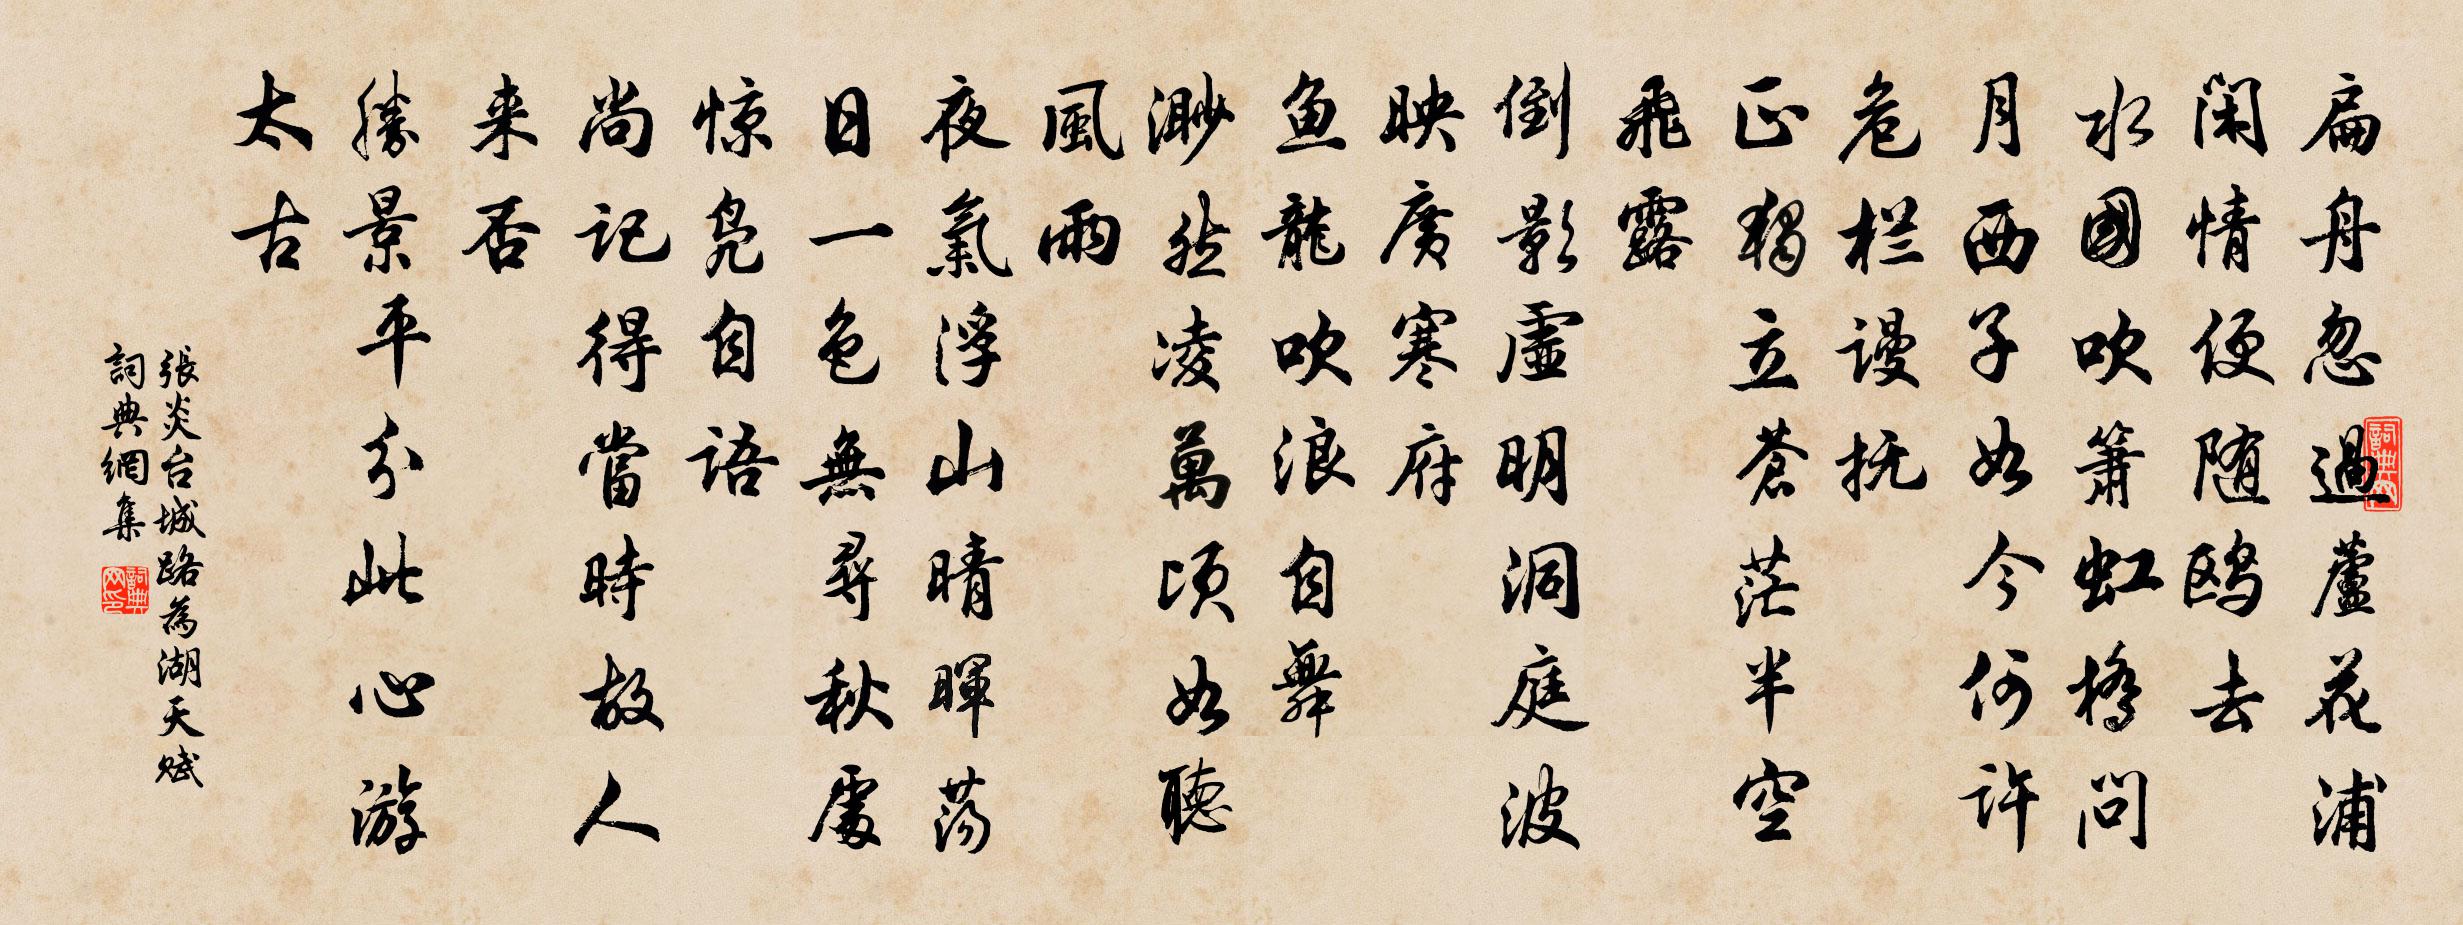 扁舟忽過蘆花浦
闲情便随鸥去
水國吹簫虹橋問
月西子如今何許
危栏谩抚
正獨立蒼茫半空
飛露
倒影虚明洞庭波
映廣寒府
鱼龍吹浪自舞
渺然凌萬頃如聽
風雨
夜氣浮山晴暉蕩
日一色無尋秋處
惊凫自语
尚记得當時故人
来否
勝景平分此心游
太古
張炎台城路為湖天賦
詞典網集